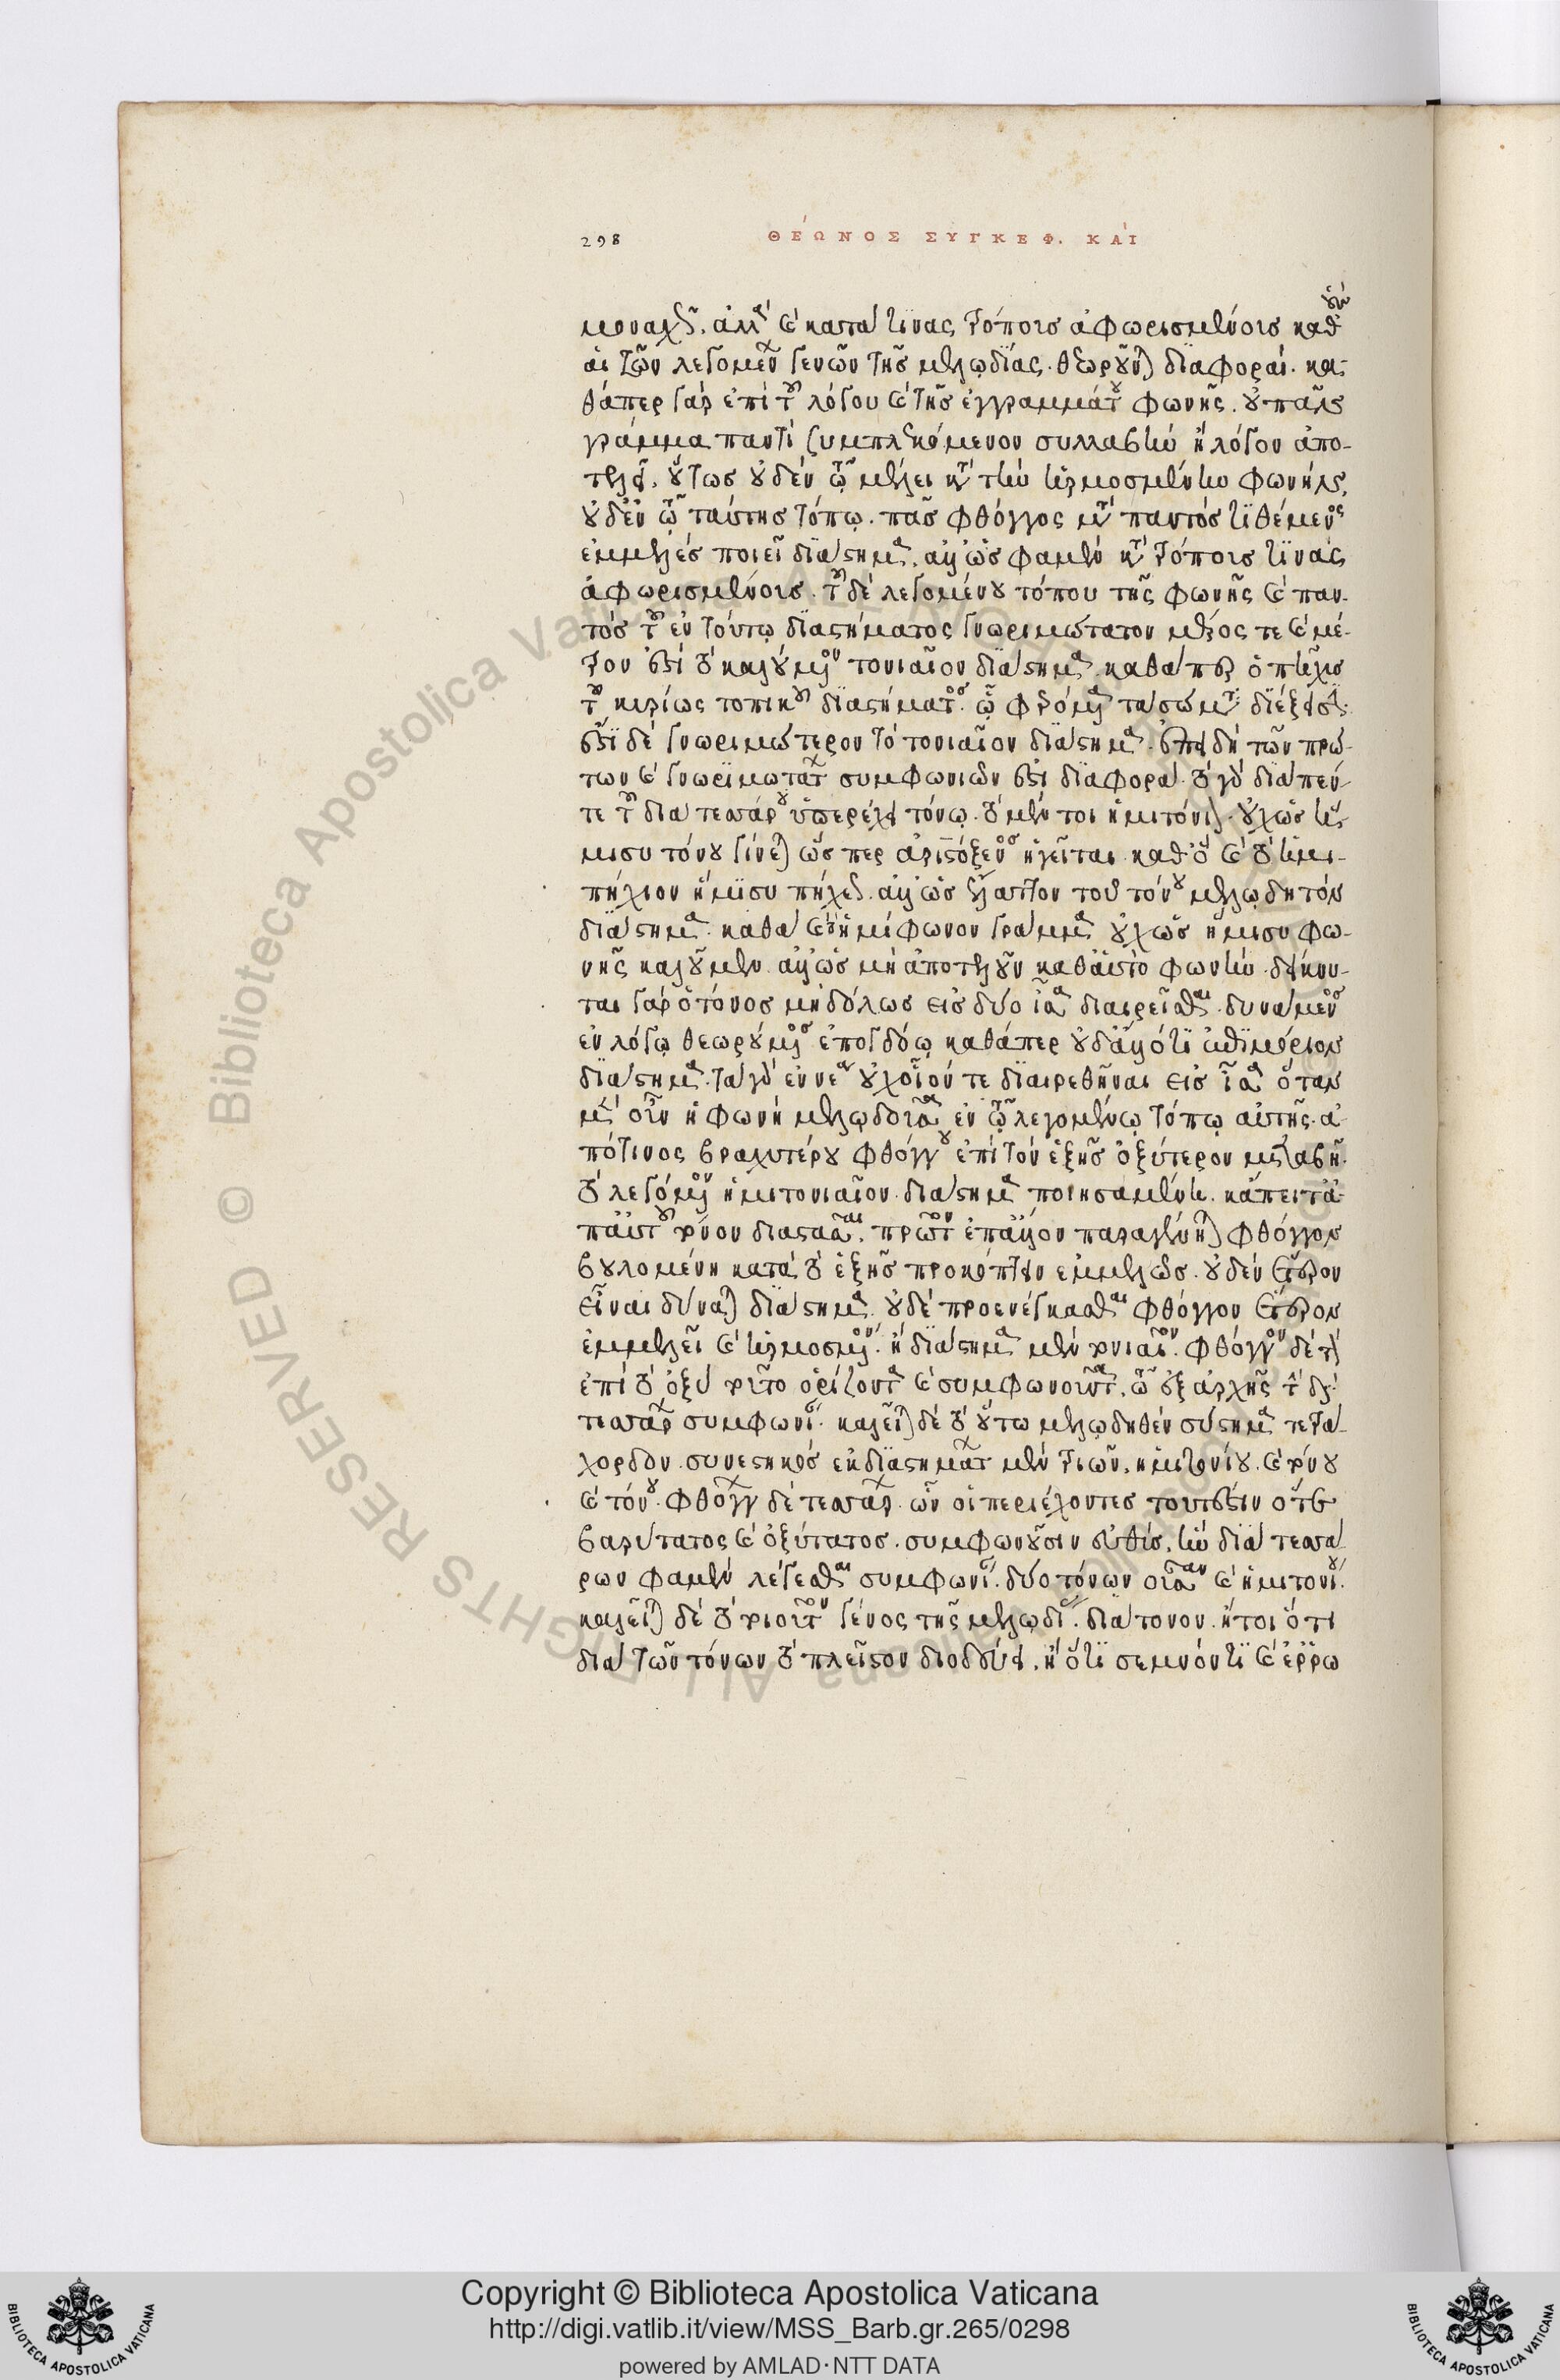 298 ΘΈΩΝΟΣ ΣΥΓΚΕΦ. ΚΑῚ
μοναχῇ. ἀλλὰ καὶ κατά τινας τρόπους ἀφωρισμένους καθ' οὓς
αἱ τῶν λεγομένων γενῶν τῆς μελῳδίας. θεωροῦνται διαφοραί. κα-
θάπερ γὰρ ἐπὶ τοῦ λόγου καὶ τῆς ἐγγραμμάτου φωνῆς. οὐ πᾶν
γράμμα παντὶ συμπλεκόμενον συλλαβὴν ἢ λόγον ἀπο-
τελεῖ. οὕτως οὐδὲν τῷ μέλει κατὰ τὴν ἡρμοσμένην φωνήν,
οὐδὲν τῷ ταύτης τόπῳ. πᾶς φθόγγος μετὰ παντός τιθέμενος
ἐμμελὲς ποιεῖ διάστημα. ἀλλ' ὥς φαμεν κατὰ τρόπους τινὰς
ἀφωρισμένους. τοῦ δὲ λεγομένου τόπου τῆς φωνῆς καὶ παν-
τὸς τοῦ ἐν τούτῳ διαστήματος γνωριμώτατον μέρος τε καὶ μέ-
τρον ἐστὶ τὸ καλούμενον τονιαῖον διάστημα. καθάπερ ὁ πῆχυς
τοῦ κυρίως τοπικοῦ διαστήματος. ὃ φερόμενα τὰ σώματα διέξεισι.
ἐστὶ δὲ γνωριμώτερον τὸ τονιαῖον διάστημα. ἐπειδὴ τῶν πρώ-
των καὶ γνωριμωτάτων συμφωνιῶν ἐστὶ διαφορά. τὸ γὰρ διὰ πέν-
τε τοῦ διὰ τεσσάρων ὑπερέχει τόνῳ. τὸ μέντοι ἡμιτόνιον. οὐχ ὡς ἥ-
μισυ τόνου γίνεται ὥσπερ ἀριστόξενος ἡγεῖται. καθ' ὃ καὶ τὸ ἡμι-
πήχιον ἥμισυ πήχεος. ἀλλ' ὡς ἔλαττον τοῦ τόνου μελῳδητὸν
διάστημα. καθὰ καὶ τὸ ἡμίφωνον γράμμα οὐχ ὡς ἥμισυ φω-
νῆς καλοῦμεν. ἀλλ' ὡς μὴ ἀποτελοῦν καθ' αὑτὸ φωνήν. δείκνυ-
ται γὰρ ὁ τόνος μηδόλως εἰς δύο ἴσα διαιρεῖσθαι. δυνάμενος
ἐν λόγῳ θεωρούμενος ἐπογδόῳ καθάπερ οὐδ' ἄλλό τι ἐπιμόριον
διάστημα. τὰ γὰρ ἐννέα οὐχ οἷόν τε διαιρεθῆναι εἰς ἴσα. ὅταν
μὲν οὖν ἡ φωνὴ μελῳδοῦσα ἐν τῷ λεγομένῳ τόπῳ αὐτῆς. ἀ-
πό τινος βραχυτέρου φθόγγου ἐπὶ τὸν ἑξῆς ὀξύτερον μεταβῇ.
τὸ λεγόμενον ἡμιτονιαῖον. διάστημα ποιησαμένη. κἄπειτα ἀ-
πὸ αὐτοῦ τόνον διαστᾶσα. πρῶτον ἐπ' ἄλλον παραγένηται φθόγγον
βουλομένη κατὰ τὸ ἑξῆς προκόπτειν ἐμμελῶς. οὐδὲν ἕτερον
εἶναι δύναται διάστημα. οὐδὲ προενέγκασθαι φθόγγον ἕτερον
ἐμμελῆ καὶ ἡρμοσμένον. ἢ διάστημα μὲν τονιαῖον. φθόγγον δὲ τὸν
ἐπὶ τὸ ὀξὺ τοῦτο ὁρίζοντα καὶ συμφωνοῦντα. τῷ ἐξ ἀρχῆς τὴν διὰ
τεσσάρων συμφωνίαν. καλεῖται δὲ τὸ οὕτω μελῳδηθὲν σύστημα τετρά-
χορδον. συνεστηκὸς ἐκ διαστημάτων μὲν τριῶν. ἡμιτονίου. καὶ τόνου
καὶ τόνου. φθόγγων δὲ τεσσάρων. ὧν οἱ περιέχοντες τουτέστιν ὅτε
βαρύτατος καὶ ὀξύτατος. συμφωνοῦσιν εὐθύς. ἣν διὰ τεσσά-
ρων φαμὲν λέγεσθαι συμφωνίαν. δύο τόνων οὖσαν καὶ ἡμιτονίου.
καλεῖται δὲ τὸ τοιοῦτον γένος τῆς μελῳδίας. διάτονον. ἤτοι ὅτι
διὰ τῶν τόνων τὸ πλεῖστον διοδεύει. ἢ ὅτι σεμνόν τι καὶ ἐρρω